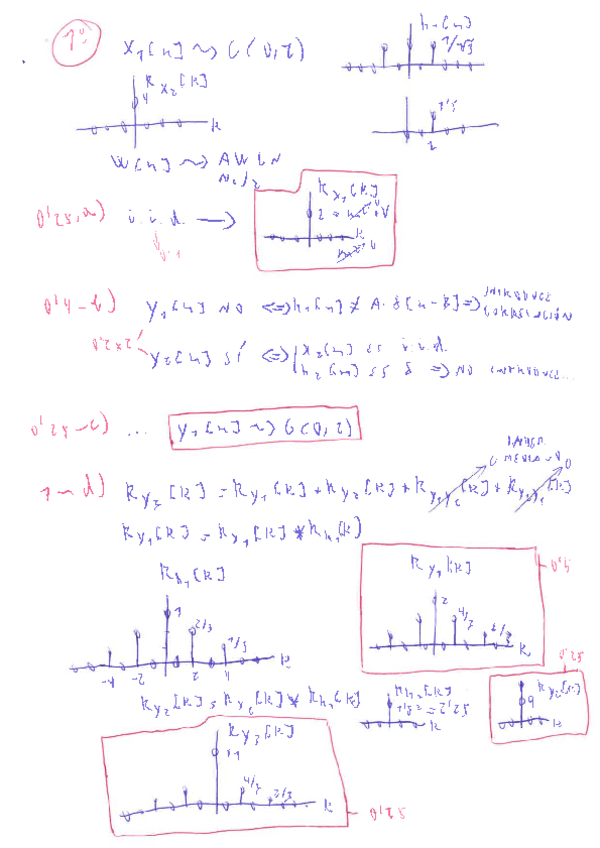 1º
x₁[n] ~> G(0,2)
h₁[n]
1/√3
R x₂[k]
4
k
1'5
2
W[n] ~> AWGN
N₀/2
0'25,a)
i.i.d. →
R x₁[k]
2
k
0'4-b)
y₁[n] NO <=> h₁[n] ≠ A·δ[n-k] => INTRODUCE
CORRELACIÓN
0'2x2
y₂[n] SÍ <=> x₂[n] es i.i.d.
h₂[n] es δ => NO INTRODUCE...
0'25-c) ...
y₁[n] ~> G(0,2)
MEDIA = 0
1-d)
R y₃[k] = R y₁[k] + R y₂[k] + R y₁y₂[k] + R y₂y₁[k]
0
R y₁[k] = R x₁[k] * R h₁[k]
R h₁[k]
1
2/3
1/3
-4
-2
2
4
k
R y₁[k]
2
4/3
2/3
k
0'5
R y₂[k] = R x₂[k] * R h₂[k]
R h₂[k]
1'5² = 2'25
k
R y₂[k]
9
k
0'25
R y₃[k]
11
4/3
2/3
k
0'25